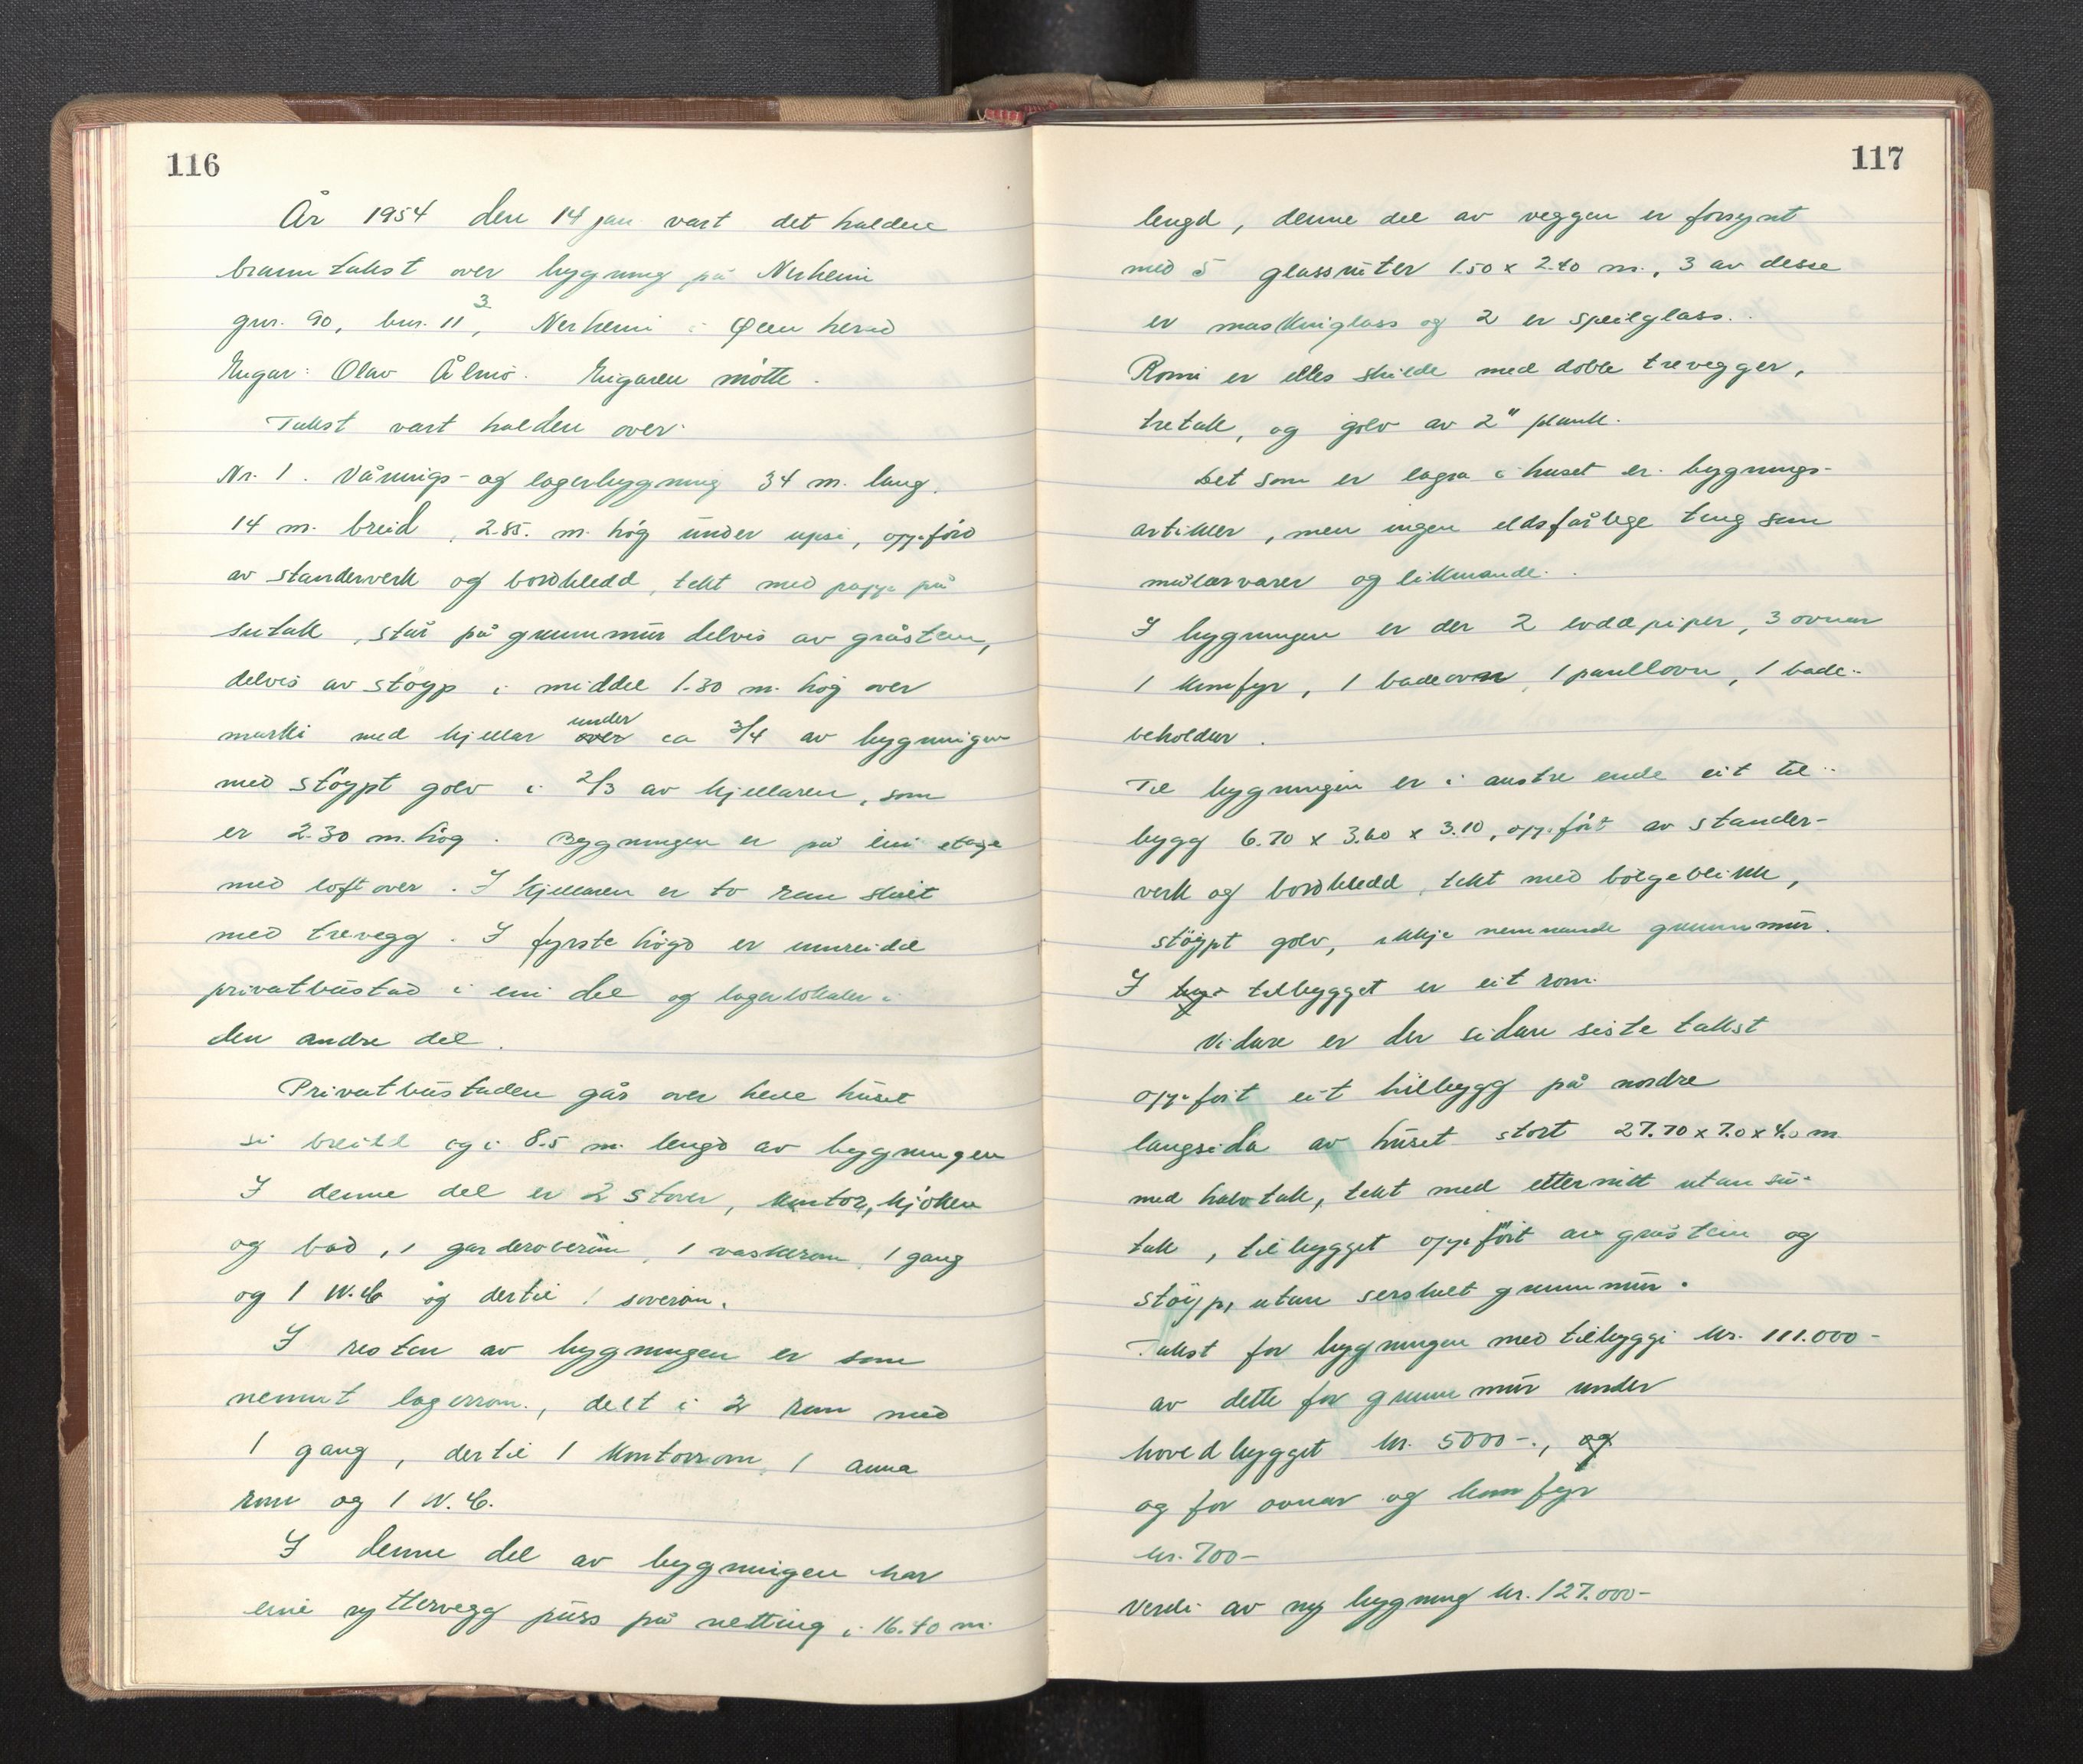 116
År 1954 den 14 jan vart det halden
branntakst over bygning på Nerheim
gnr. 90, bnr. 11³, Nerheim i Ølen herad
Eigar: Olav Ålmo. Eigaren møtte.
Takst vart halden over:
Nr. 1. Vånings- og lagerbygning 34 m. lang,
14 m. breid, 2.85. m. høg under upsi, oppførd
av standerverk og bordkledd, tekt med papp på
sutak, står på grunnmur delvis av gråstein,
delvis av støyp i middel 1.30 m. høg over
marki med kjellar over under ca 3/4 av bygningen
med støypt golv i 2/3 av kjellaren, som
er 2.30 m. høg. Bygningen er på ein etasje
med loft over. I kjellaren er to rom skilt
med trevegg. I fyrste høgd er innreidd
privatbustad i ein del og lagerlokaler i
den andre del.
Privatbustaden går over heile huset
si breidd og i 8.5 m. lengd av bygningen
I denne del er 2 stover, kontor, kjøken
og bad, 1 garderoberom, 1 vaskerom, 1 gang
og 1 W.C og dertil 1 soverom.
I resten av bygningen er som
nemnt lagerrom, delt i 2 rom med
1 gang, dertil 1 kontorrom, 1 anna
rom og 1 W.C.
I denne del av bygningen har
eine yttervegg puss på netting i 16.40 m.
117
lengd, denne del av veggen er forsynt
med 5 glassruter 1.50 x 2.40 m., 3 av desse
er maskinglass og 2 er speilglass.
Romi er elles skilde med doble trevegger,
tretak, og golv av 2" plank.
Det som er lagra i huset er bygnings-
artikler, men ingen eldsfårlege ting som
målarvarer og liknande.
I bygningen er der 2 ... piper, 3 ovnar
1 komfyr, 1 badeovn, 1 panelovn, 1 bade-
beholder.
Til bygningen er i austre ende eit til-
bygg 6.70 x 3.60 x 3.10, oppført av stander-
verk og bordkledd, tekt med bølgeblikk,
støypt golv, ikkje nemnande grunnmur.
I byg tilbygget er eit rom.
Vidare er der sidan siste takst
oppført eit tilbygg på nordre
langsida av huset stort 27.70 x 7.0 x 4.0 m
med halvtak, tekt med etternitt utan su-
tak, tilbygget oppført av gråstein og
støyp, utan serskilt grunnmur.
Takst for bygningen med tilbyggi kr. 111.000-
av dette for grunnmur under
hovedbygget kr. 5000-., og
og for ovnar og komfyr
kr. 700-
Verdi av ny bygning kr. 127.000-